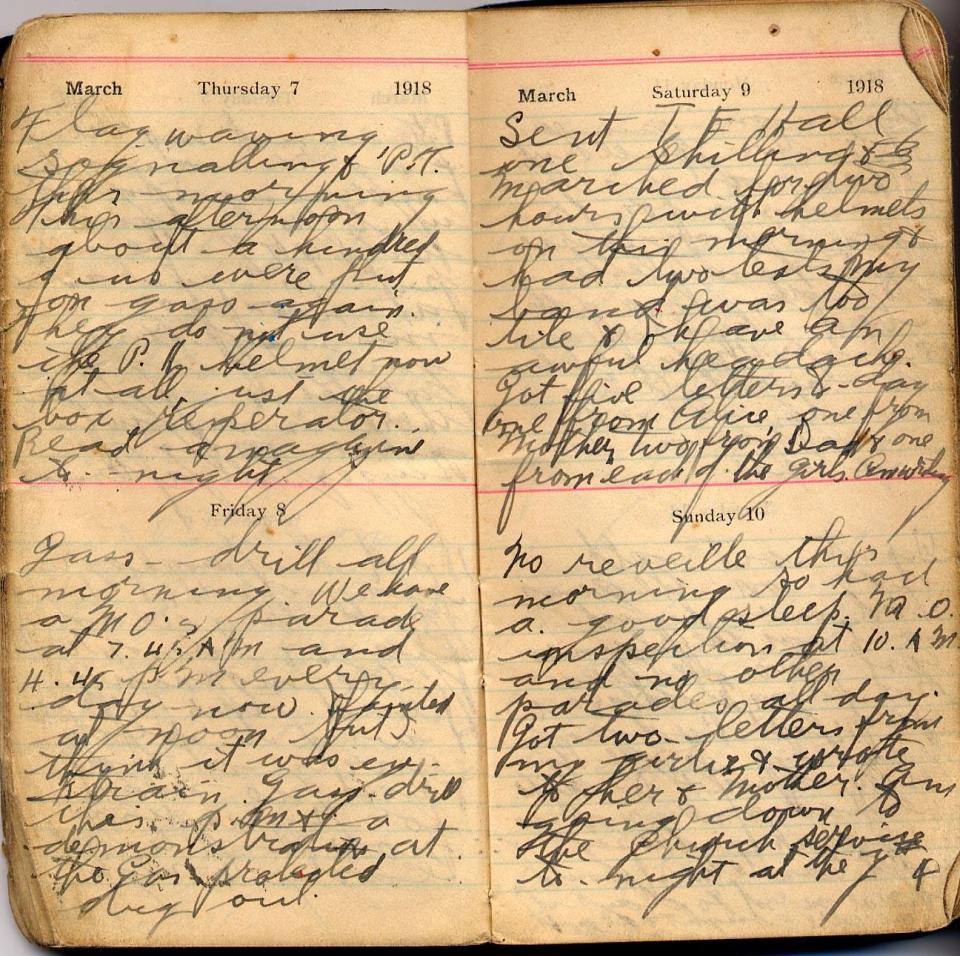 March Thursday 7 1918
Flag waving
signalling & P.T.
this morning
this afternoon
about a hundred
of us were put
on gass again.
They do not use
the P. H. helmet now
at all just the
box resperator.
Read a magazine
to-night
Friday 8
Gass-drill all
morning. We have
a M.O.s parade
at 7.45 A M and
4.45 p.m every
day now. I fainted
at noon but I
think it was
Gass-drill
this p.m & a
demonstration at
the Gas protected
dug out.
March Saturday 9 1918
Sent T F Hall
one shilling &
Marched for two
hours with helmets
on this morning &
had two tests my
band was too
tite & I have an
awful headache.
Got five letters to-day
one from Alice, one from
Mother, two from Dad & one
from each of the girls. Am writing
Sunday 10
No reveille this
morning so had
a good sleep. M.O.
inspection at 10. A M
and no other
parades all day.
Got two letters from
my girlie & wrote
to her & Mother. Am
going down to
the Church service
to-night at the Y